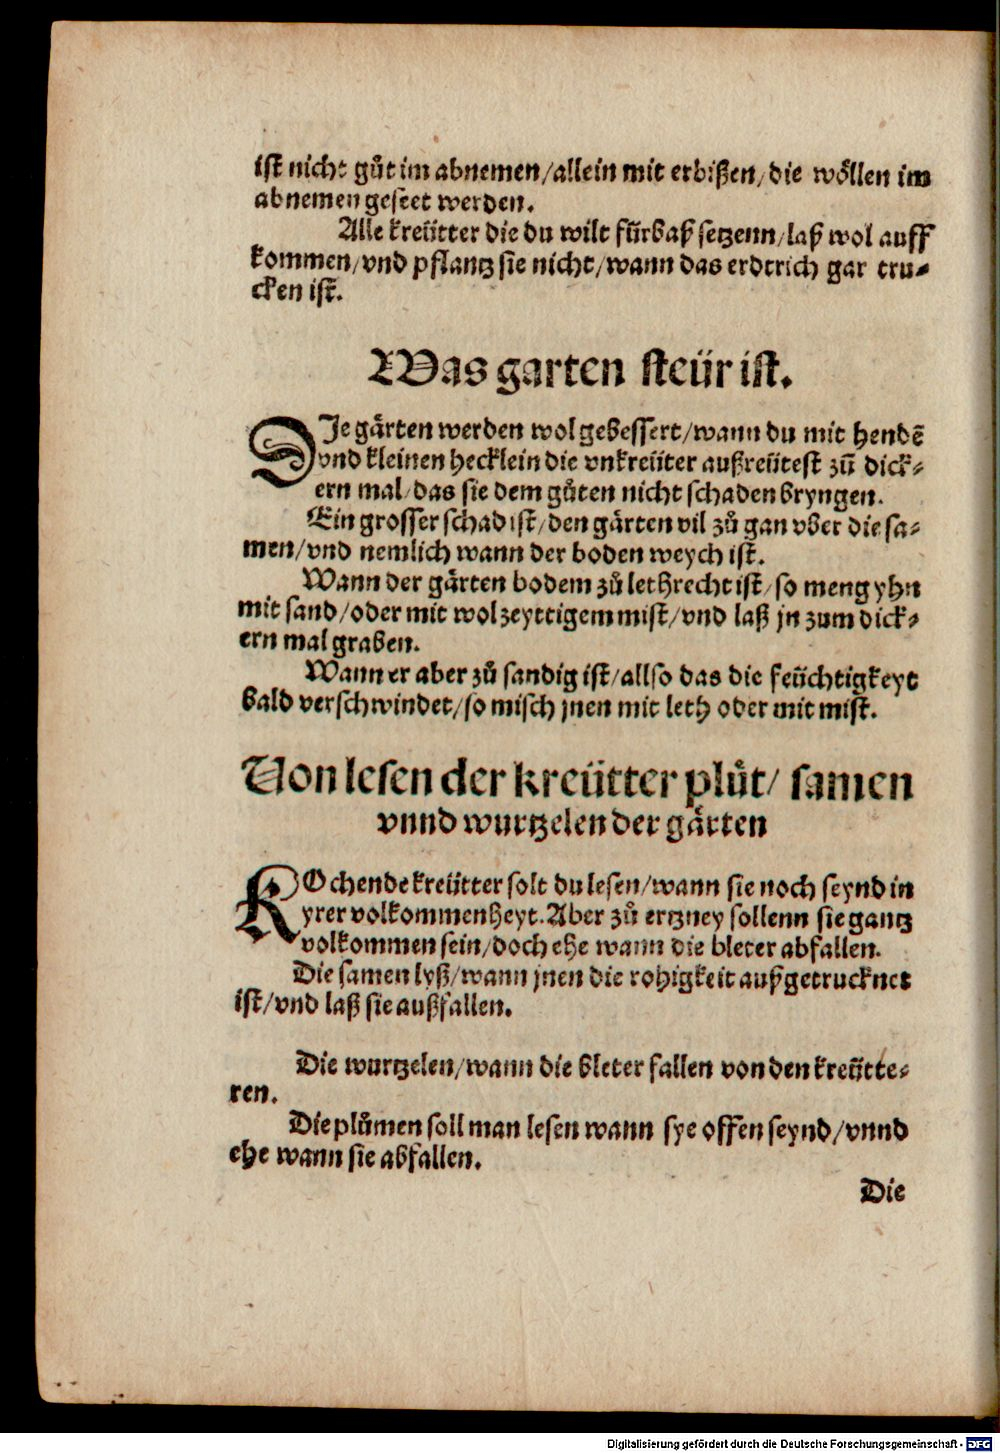 ist nicht gůt im abnemen/allein mit erbißen/die wöllen im
abnemen geseet werden.
Alle kreütter die du wilt fürbaß setzenn/laß wol auff
kommen/vnd pflantz sie nicht/wann das erdtrich gar tru⸗
cken ist.
Was garten steür ist.
DJe gärten werden wol gebessert/wann du mit hendē
vnd kleinen hecklein die vnkreüter außreütest zů dick⸗
ern mal/das sie dem gůten nicht schaden bryngen.
Ein grosser schad ist/den gärten vil zů gan vber die sa⸗
men/vnd nemlich wann der boden weych ist.
Wann der gärten bodem zů lethrecht ist/so meng yhn
mit sand/oder mit wol zeyttigem mist/vnd laß jn zum dick⸗
ern mal graben.
Wann er aber zů sandig ist/allso das die feüchtigkeyt
bald verschwindet/so misch jnen mit leth oder mit mist.
Von lesen der kreütter plůt/ samen
vnnd wurtzelen der gärten
KOchende kreütter solt du lesen/wann sie noch seynd in
yrer volkommenheyt. Aber zů ertzney sollenn sie gantz
volkommen sein/doch ehe wann die bleter abfallen.
Die samen lyß/wann jnen die rohigkeit außgetrucknet
ist/vnd laß sie außfallen.
Die wurtzelen/wann die bleter fallen von den kreütte⸗
ren.
Die plůmen soll man lesen wann sye offen seynd/vnnd
ehe wann sie abfallen.
Die
Digitalisierung gefördert durch die Deutsche Forschungsgemeinschaft - DFG